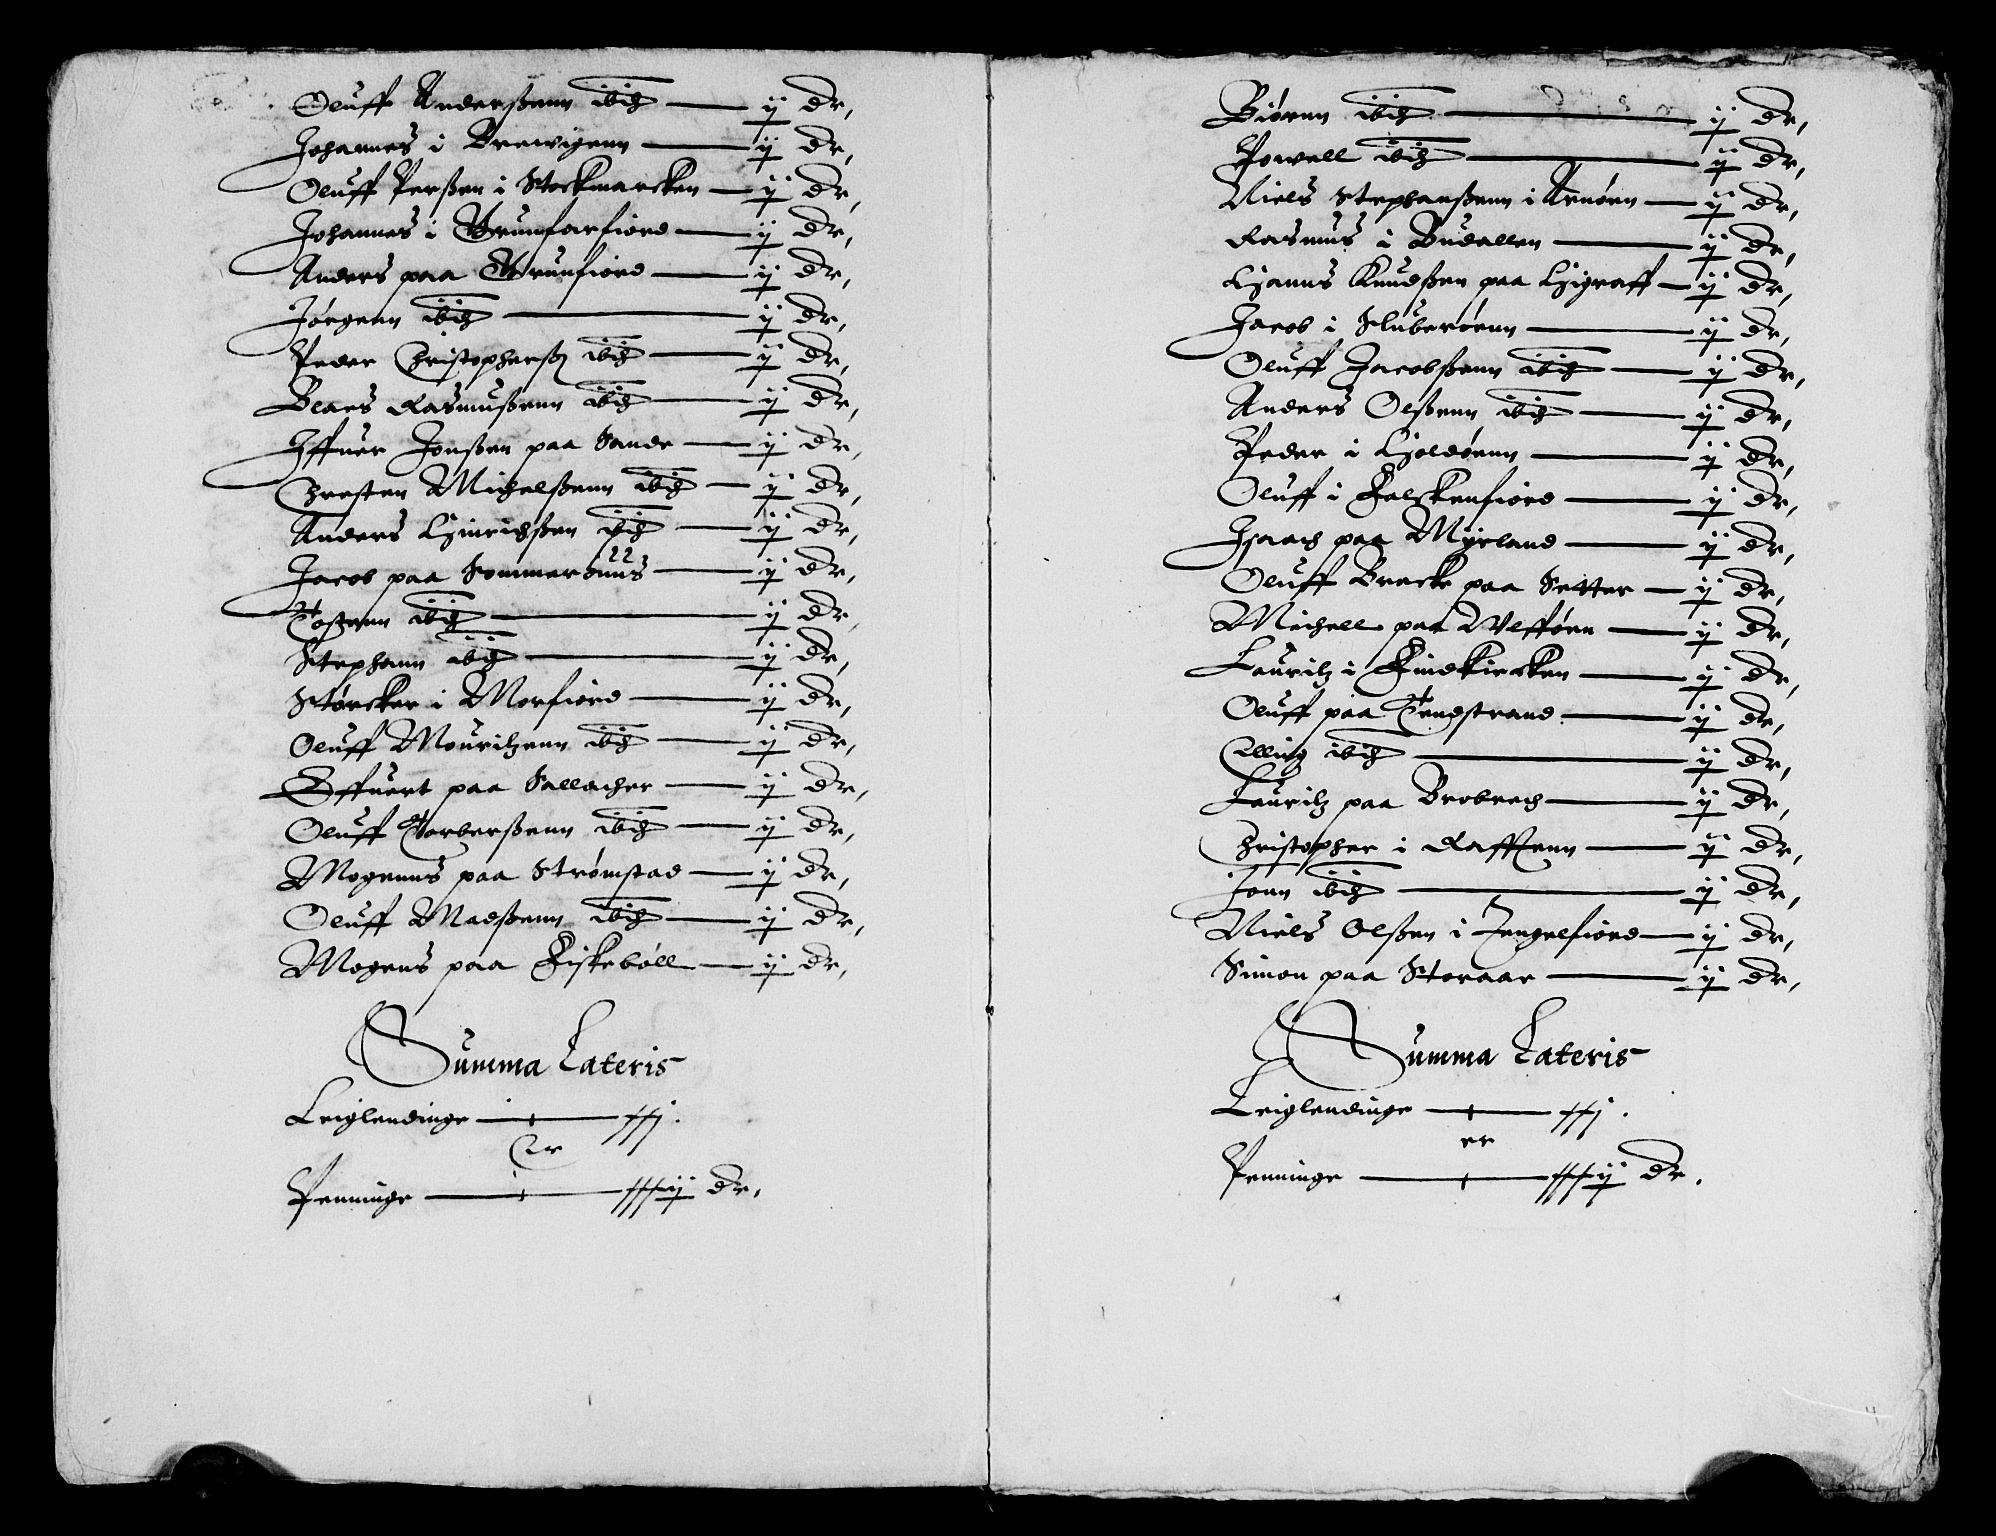 Oluff Anderßenn ibid — ij dr,
Johannes i Brewigenn — ij dr,
Oluff Perßen i Stockmarcken — ij dr,
Johannes i Grunfarfiord — ij dr,
Anders paa Grunfiord — ij dr,
Jørgenn ibid — ij dr,
Peder Christopherß ibid — ij dr,
Claes Rasmußenn ibid — ij dr,
Iffuer Jonßen paa Sande — ij dr,
Chresten Michelßenn ibid — ij dr,
Anders Hinrichßen ibid — ij dr,
Jacob paa Sommerøuus — ij dr,
Toßtenn ibid — ij dr,
Stephann ibid — ij dr,
Størcker i Morfiord — ij dr,
Oluff Mouritzenn ibid — ij dr,
Siffuert paa Sallacher — ij dr,
Oluff Torberßenn ibid — ij dr,
Mogenns paa Strømstad — ij dr,
Oluff Madßenn ibid — ij dr,
Mogens paa Fiskebøll — ij dr,
Summa Lateris
Leiglendinge — xxj.
Er
Penninge — xxxxij dr,
Biørnn ibid — ij dr,
Powell ibid — ij dr,
Niels Stephanßenn i Arnøen — ij dr,
Rasmus i Budallen — ij dr,
Hanns Knudßen paa Higraff — ij dr,
Jacob i Sluberøenn — ij dr,
Oluff Jacobßenn ibid — ij dr,
Anders Olßenn ibid — ij dr,
Peder i Holdøenn — ij dr,
Oluff i Falckenfiord — ij dr,
Isaach paa Myrland — ij dr,
Oluff Brecke paa Setter — ij dr,
Michell paa Ulfføen — ij dr,
Lauritz i Findkircken — ij dr,
Oluff paa Tendstrand — ij dr,
Elling ibid — ij dr,
Lauritz paa Brobrech — ij dr,
Christopher i Rafftenn — ij dr,
Jonn ibid — ij dr,
Niels Olßen i Jengelfiord — ij dr,
Simon paa Storaar — ij dr,
Summa Lateris
Leiglendinge — xxj.
er
Penninge — xxxxij dr.